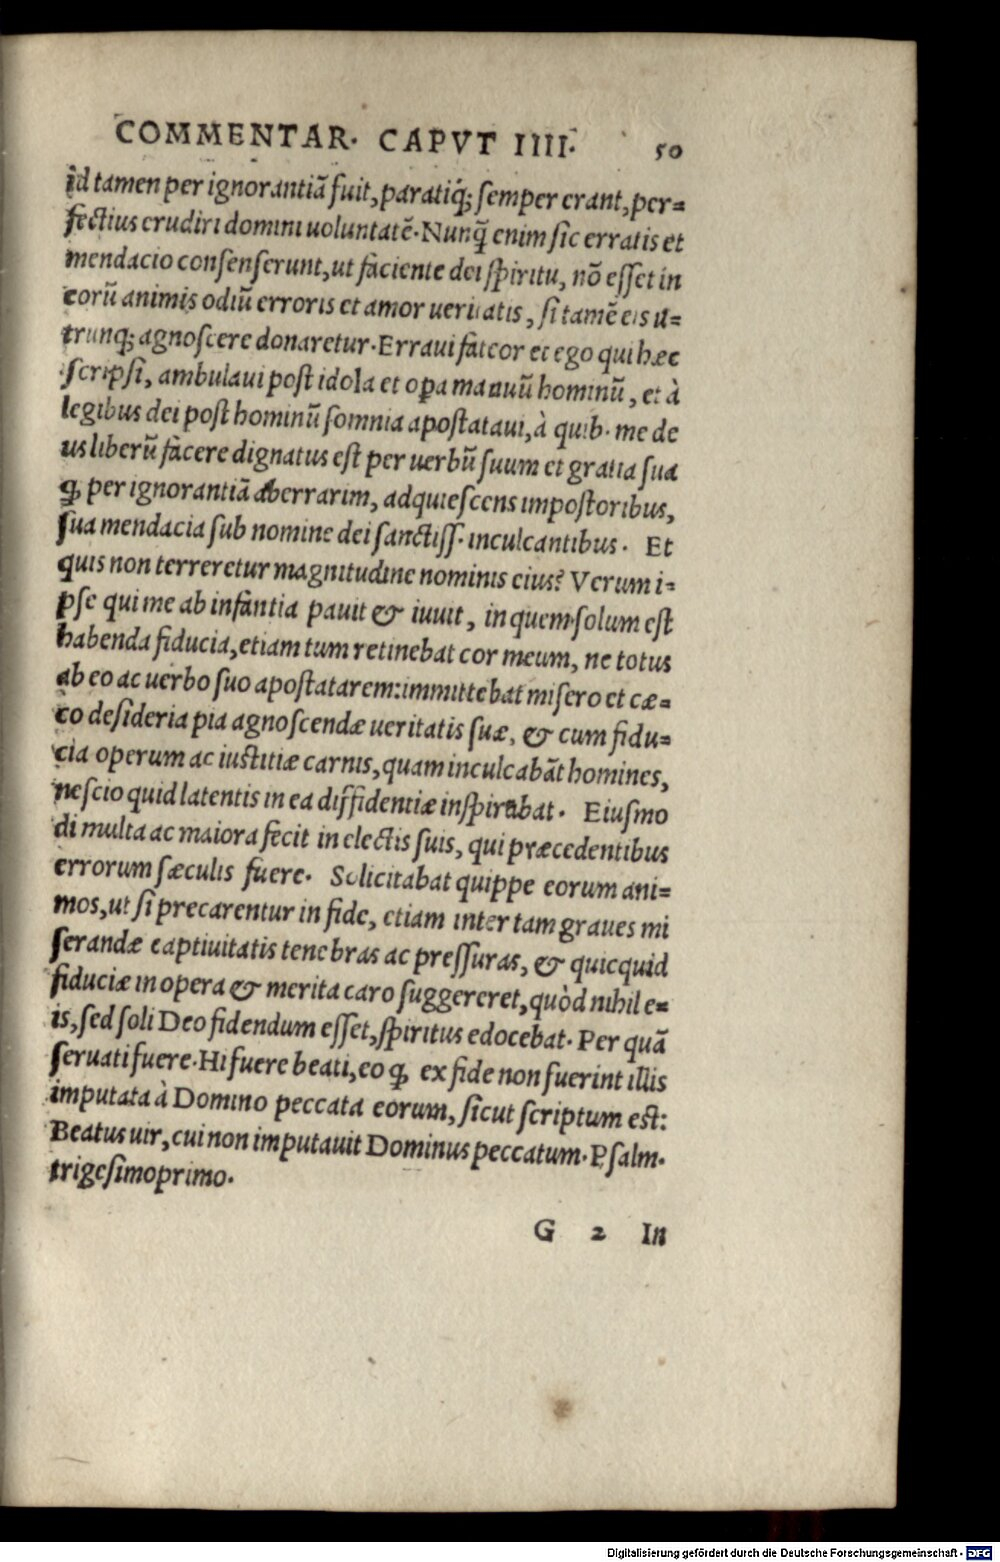 COMMENTAR. CAPVT IIII. 50
id tamen per ignorantiā fuit, paratiq́; semper erant, per=
fectius erudiri domini uoluntatē. Nunq̄ enim sic erratis et
mendacio consenserunt, ut faciente dei spiritu, nō esset in
eorū animis odiū erroris et amor ueritatis, si tamē eis u=
trunq; agnoscere donaretur. Erraui fateor et ego qui hæc
scripsi, ambulaui post idola et opa manuū hominū, et à
legibus dei post hominū somnia apostataui, à quib. me de
us liberū facere dignatus est per uerbū suum et gratia sua
ꝙ per ignorantiā aberrarim, adquiescens impostoribus,
sua mendacia sub nomine dei sanctiss. inculcantibus. Et
quis non terreretur magnitudine nominis eius? Verum i=
pse qui me ab infantia pauit & iuuit, in quem solum est
habenda fiducia, etiam tum retinebat cor meum, ne totus
ab eo ac uerbo suo apostatarem: immittebat misero et cæ=
co desideria pia agnoscendæ ueritatis suæ, & cum fidu=
cia operum ac iustitiæ carnis, quam inculcabāt homines,
nescio quid latentis in ea diffidentiæ inspirabat. Eiusmo
di multa ac maiora fecit in electis suis, qui præcedentibus
errorum sæculis fuere. Solicitabat quippe eorum ani=
mos, ut si precarentur in fide, etiam inter tam graues mi
serandæ captiuitatis tenebras ac pressuras, & quicquid
fiduciæ in opera & merita caro suggereret, quòd nihil e=
is, sed soli Deo fidendum esset, spiritus edocebat. Per quā
seruati fuere. Hi fuere beati, eo ꝙ ex fide non fuerint illis
imputata à Domino peccata eorum, sicut scriptum est:
Beatus uir, cui non imputauit Dominus peccatum. Psalm.
trigesimoprimo.
G 2 In
Digitalisierung gefördert durch die Deutsche Forschungsgemeinschaft - DFG